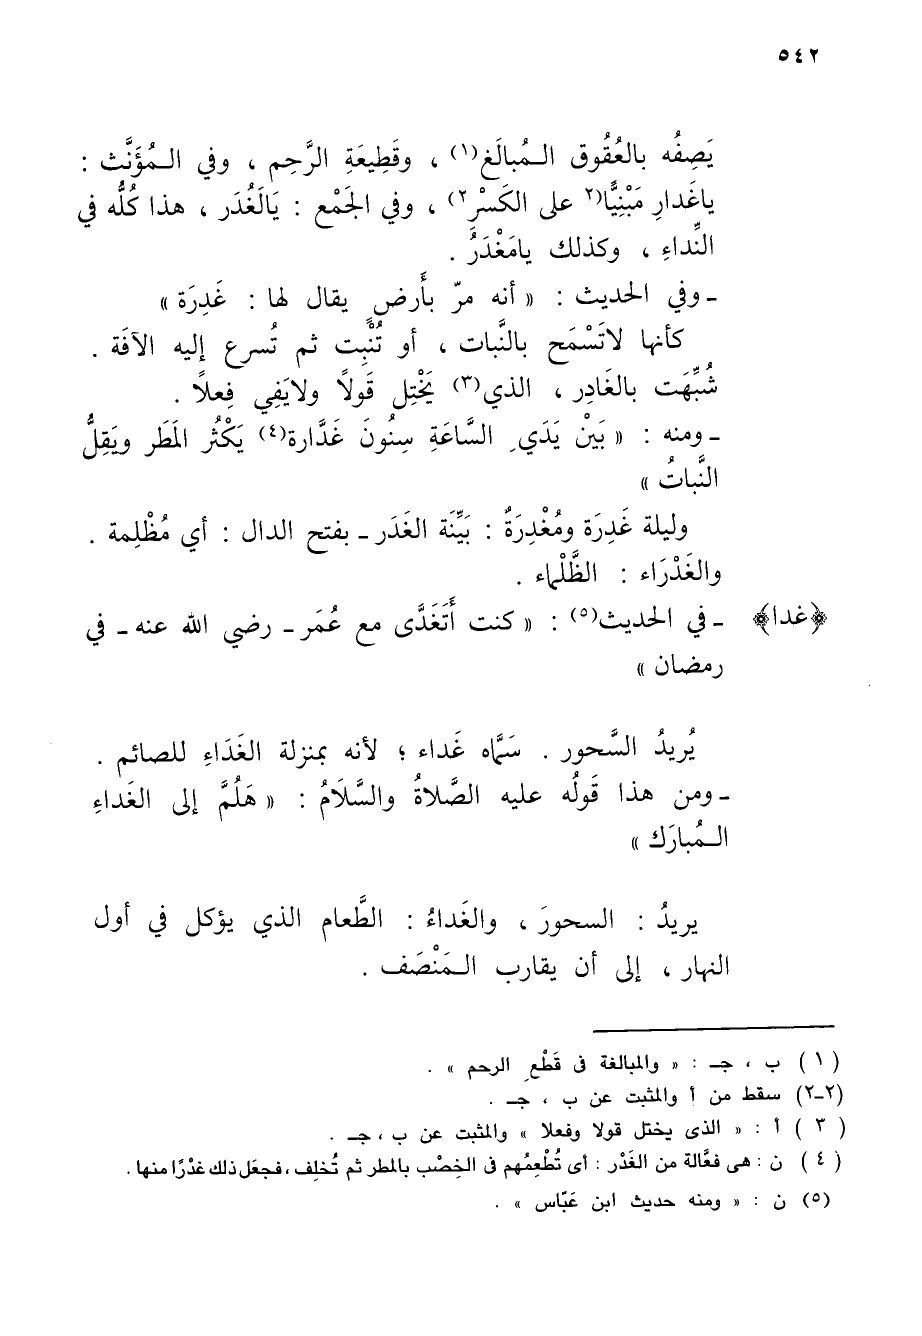 ٥٤٢
يَصِفُه بالعُقوق المُبالَغ(١) ، وقَطِيعَةِ الرَّحِم ، وفي المُؤَنَّث :
ياغَدارِ مَبْنِيًّا(٢ على الكَسْرِ٢) ، وفي الجَمْع : يَالَغُدَر ، هذا كُلُّه في
النِّداءِ ، وكذلك يامَغْدَرُ .
ـ وفي الحديث : « أنه مرّ بأَرضٍ يقال لها : غَدِرَة »
كأنها لاتَسْمَح بالنَّبات ، أو تُنْبِت ثم تُسرع إليه الآفَة .
شُبِّهَت بالغَادِر ، الذي(٣) يَخْتِل قَولاً ولايَفِي فِعلاً .
ـ ومنه : « بَيْن يَدَي السَّاعَةِ سِنُونَ غَدَّارة(٤) يَكْثُر المَطَر ويَقِلُّ
النَّباتُ »
وليلة غَدِرَة ومُغْدِرَةٌ : بَيِّنَة الغَدَر ـ بفتح الدال : أي مُظْلِمة .
والغَدْرَاء : الظَّلْماء .
﴿غدا﴾ ـ في الحديث(٥) : « كنت أَتَغَدَّى مع عُمَر ـ رضي الله عنه ـ في
رمضان »
يُريدُ السَّحور . سَمَّاه غَداء ؛ لأنه بمنزلة الغَدَاءِ للصائم .
ـ ومن هذا قَولُه عليه الصَّلاةُ والسَّلَامُ : « هَلُمَّ إلى الغَداءِ
المُبارَك »
يريدُ : السحورَ ، والغَداءُ : الطَّعام الذي يؤكل في أول
النهار ، إلى أن يقارب المَنْصَف .
(١) ب ، جـ : « والمبالغة فى قَطْعِ الرحم » .
(٢-٢) سقط من أ والمثبت عن ب ، جـ .
(٣) أ : « الذى يختل قولا وفعلا » والمثبت عن ب ، جـ .
(٤) ن : هى فعَّالة من الغَدْر : أى تُطْعِمُهم فى الخِصْب بالمطر ثم تُخلِف ، فجعل ذلك غدْرًا منها .
(٥) ن : « ومنه حديث ابن عَبّاس » .